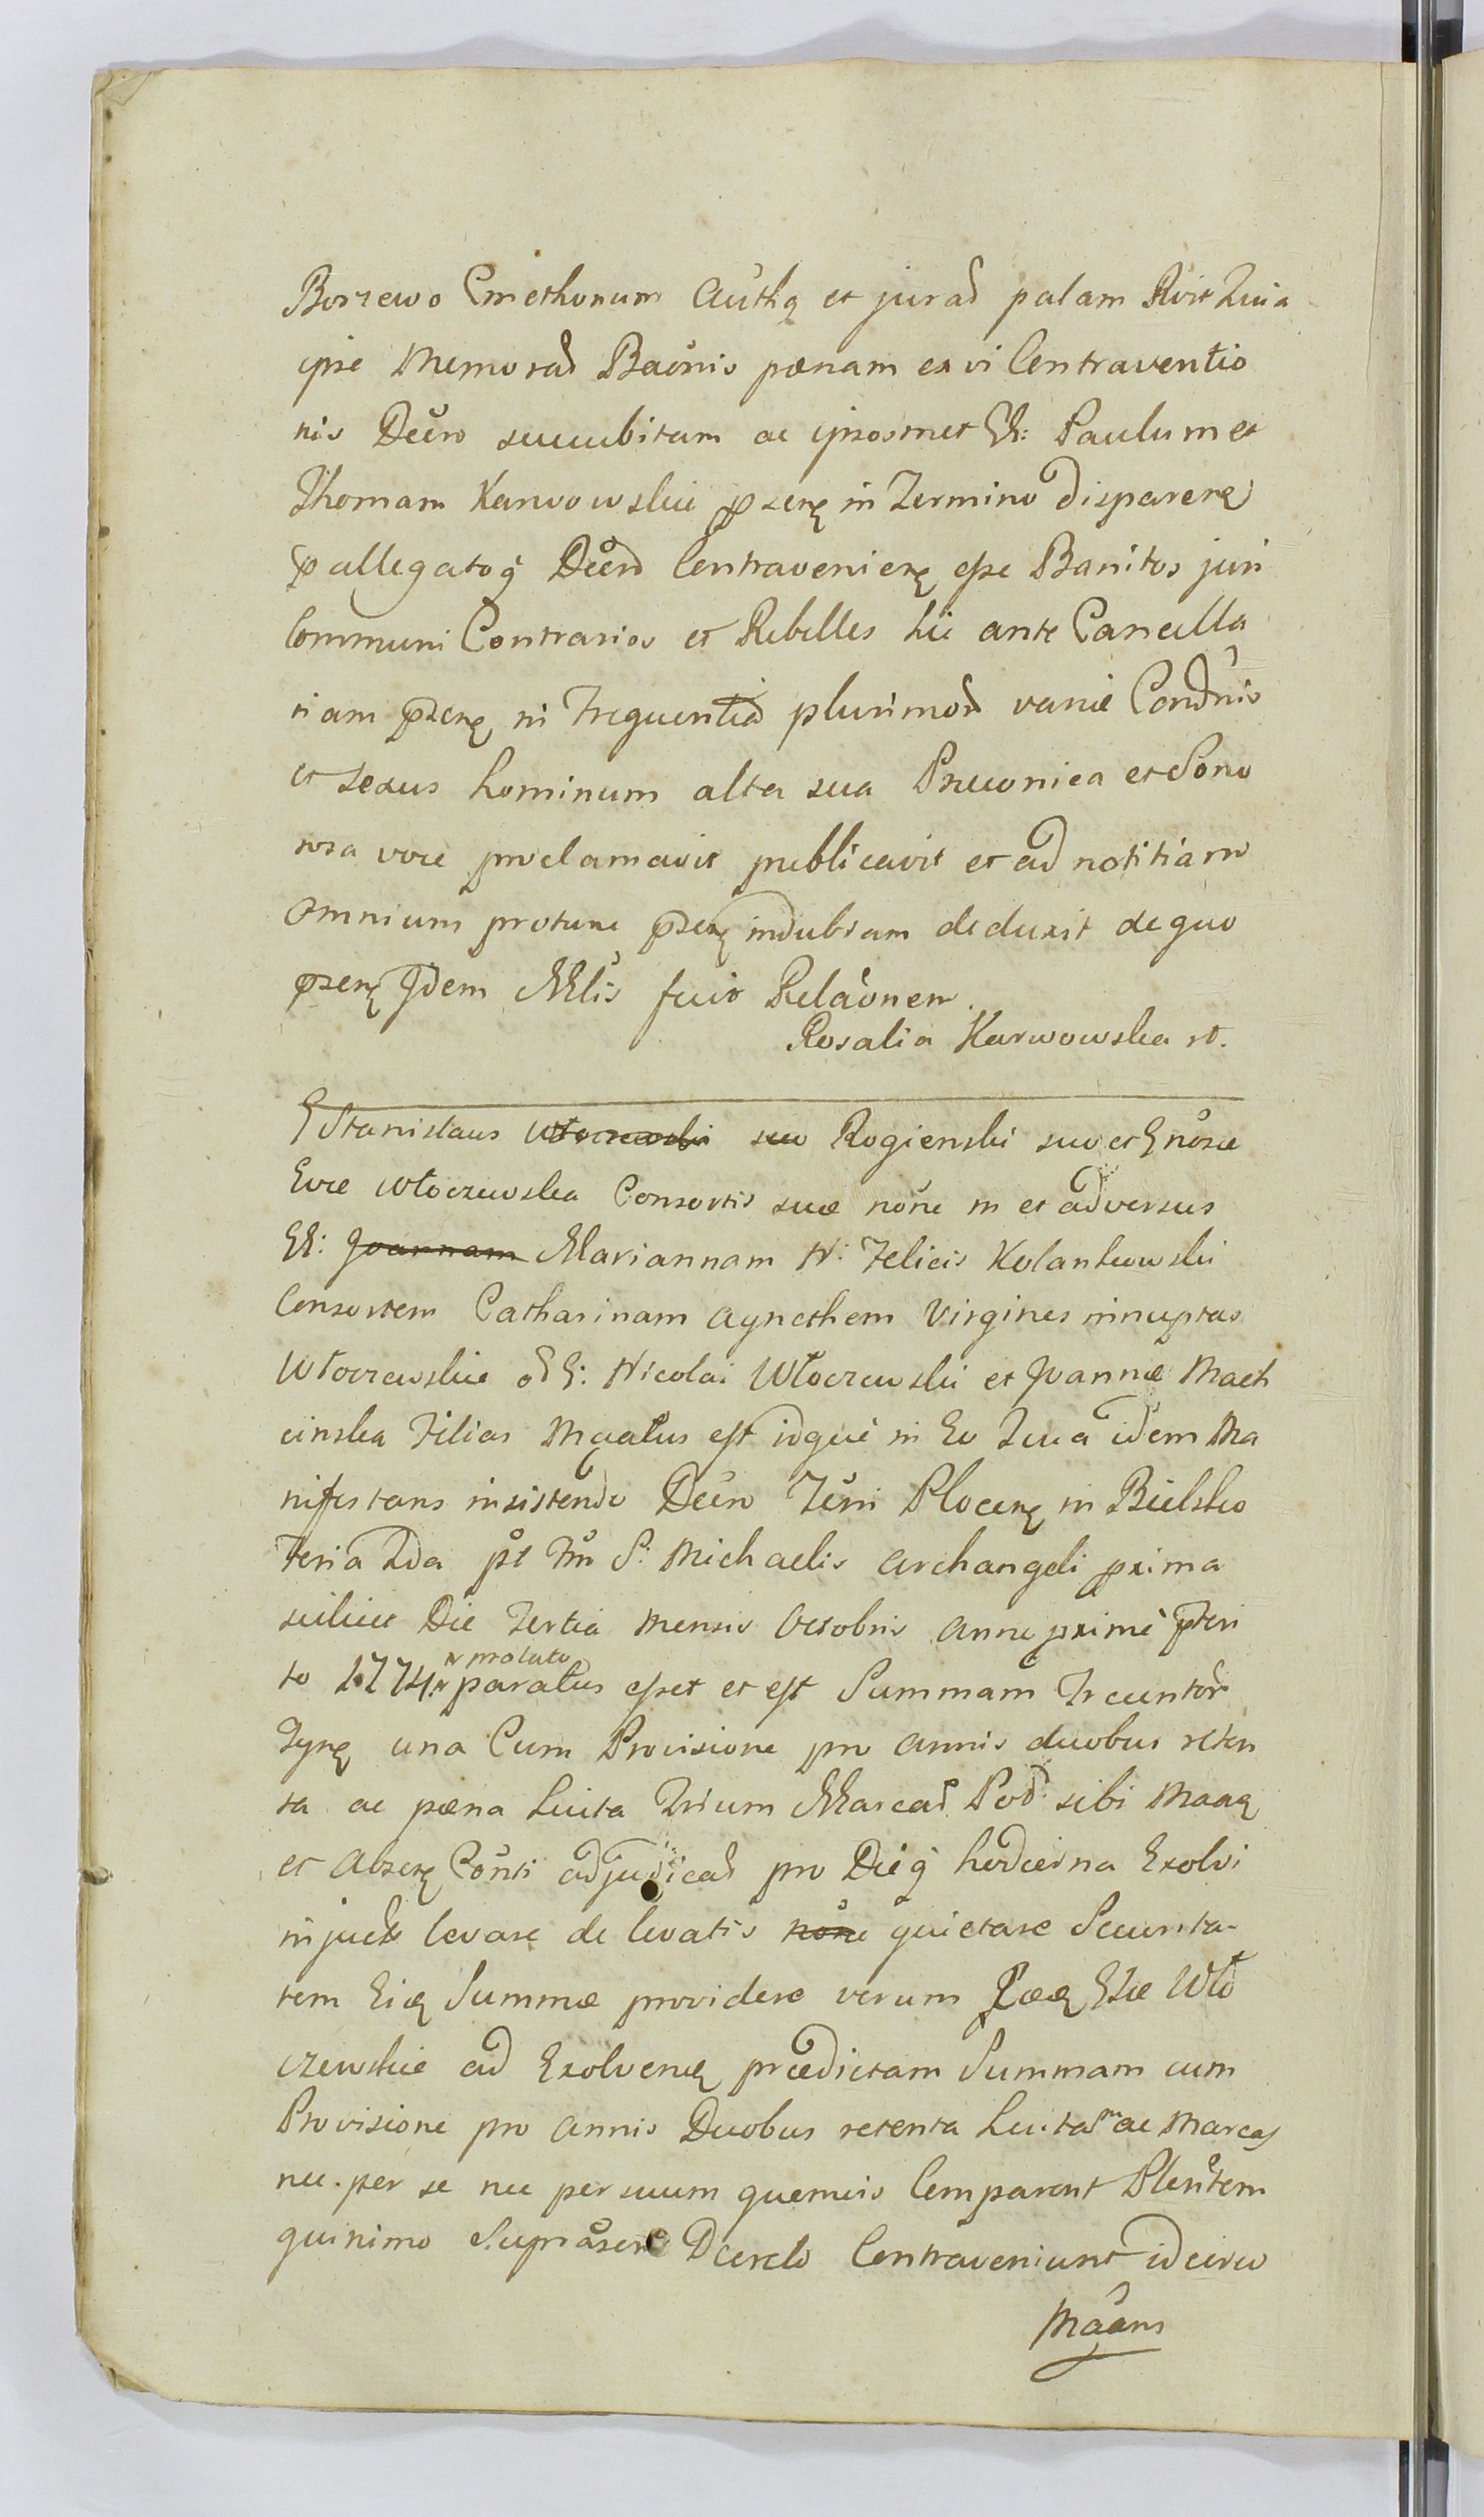 Borzewo Cmethonum Authq et jurad palam Rvit Quia
ipse Memorad Baonis pœnam ex vi Contraventio
nis Decro succubitam ac ipsosmet GG: Paulum et
Thomam Karwowskie in Termino disparen
allegatoq Decro Contravenien esse Banitos juri
Communi Contrarios et Rebelles hic ante Cancella
riam pzen in Frequentia plurimor varie Condnis
et sexus hominum alta sua Præconica et Sono
rosa voce proclamavit publicavit et ad notitiam
omnium protunc pzen indubiam deduxit de quo
pzen Idem Mlis fecit Relaonem.
Rosalia Karwowska st.
G Stanislaus Włoczewski suo Rogienski suo et Gnosæ
Evæ Włoczewska Consortis suæ noñe in et adversus
GG: Joannam Mariannam N: Felicis Kolankowski
Consortem Catharinam Agnethem Virgines innuptas
Włoczewskie G: Nicolai Włoczewski et Joannæ Mach
cinska Filias Mgatus est idque in Eo Quia idem Ma
nifestans insistendo Decro Terri Plocen in Bielsko
Feria 2da pt Fm S: Michaelis Archangeli pxima
scilicet Die Tertia Mensis Octobris Anni pximi pteri
to 1774. prolato
paratus esset et est Summam Trecentor
Tyn una Cum Provisione pro Annis duobus reten
ta ac pæna Luita Trium Marcar Pod. sibi Maaq
et Absen Conti adjudicad pro Dieq hodierna Exolvi
injuctis levare de levatis none quietare Securita-
tem Eiq Summæ providere verum Gzæ Wło
czewskie ad Exolvend prædictam Summam cum
Provisione pro Annis Duobus retenta Luitam ac Marcas
nec per se nec per suum quemvis Comparent Plentem
quinimo Suprasen Dcerelo Contraveniunt idcirco
Maans